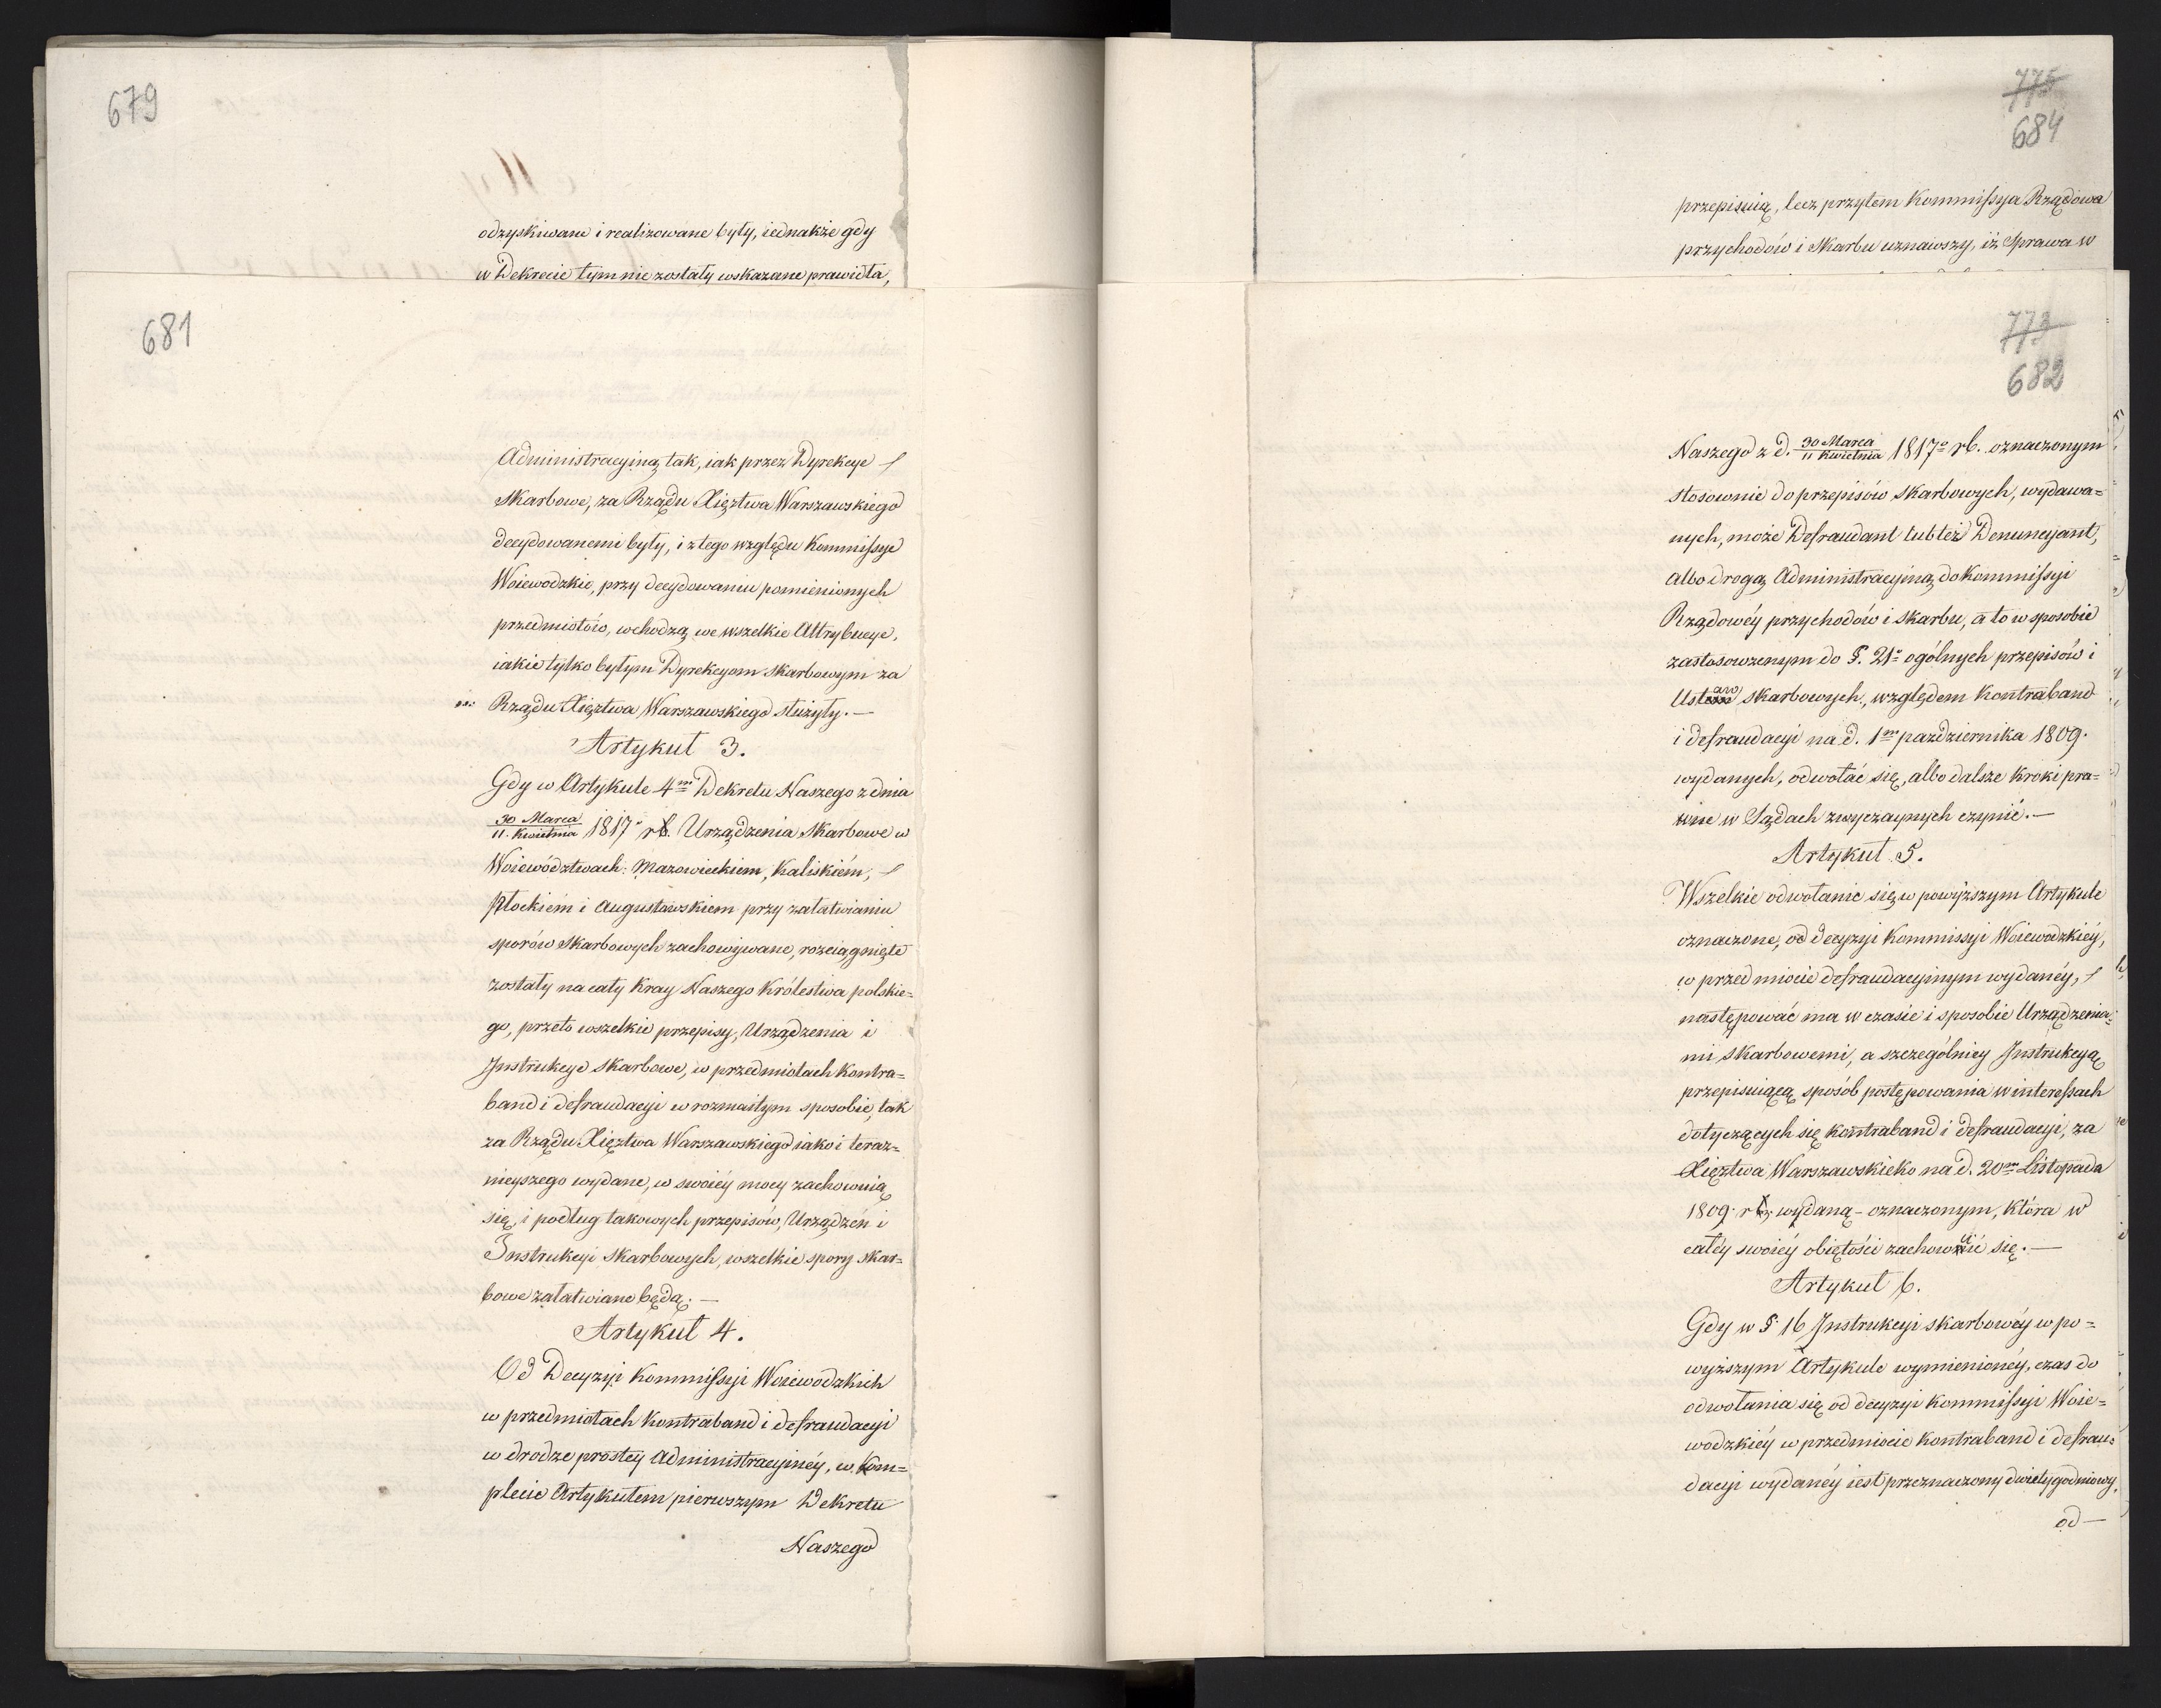 679
odzyskiwane i realizowane były, iednakże gdy
w Dekrecie tym nie zostały wskazane prawidła,
681
Administracyiną tak, iak przez Dyrekcye
Skarbowe, za Rządu Xięztwa Warszawskiego
decydowanemi były, i z tego względu Kommissye
Woiewodzkie, przy decydowaniu pomienionych
przedmiotów, wchodzą we wszelkie Attrybucye,
iakie tylko byłym Dyrekcyom Skarbowym za
Rządu Xięztwa Warszawskiego służyły.—
Artykuł 3.
Gdy w Artykule 4m Dekretu Naszego z dnia
30 Marca / 11. Kwietnia 1817o rb. Urządzenia Skarbowe w
Woiewództwach: Mazowieckiem, Kaliskiém,
Płockiém i Augustowskiem przy załatwianiu
sporów Skarbowych zachowywane, rozciągnięte
zostały na cały Kray Naszego Królestwa polskie=
go, przeto wszelkie przepisy, Urządzenia i
Instrukcye Skarbowe, w przedmiotach Kontra=
band i defraudacyi w rozmaitym sposobie, tak
za Rządu Xięztwa Warszawskiego iako i teraz=
nieyszego wydane, w swoiéy mocy zachowuią
się, i podług takowych przepisów, Urządzeń i
Instrukcyi Skarbowych, wszelkie spory skar=
bowe załatwiane będą.—
Artykuł 4.
Od Decyzyi Kommissyi Woiewodzkich
w przedmiotach Kontraband i defraudacyi
w drodze prostey Administracyinéy, w Kom=
plecie Artykułem pierwszym Dekretu
Naszego
775
684
przepisuią, lecz przytem Kommissya Rządowa
przychodów i Skarbu uznawszy, iż Sprawa w
773
682
Naszego z d. 30 Marca / 11 Kwietnia 1817o rb. oznaczonym
stosownie do przepisów skarbowych, wydawa=
nych, może Defraudant lub też Denuncyant,
albo drogą Administracyiną do Kommissyi
Rządowéy przychodów i skarbu, a to w sposobie
zastosowzenym do §. 21o ogólnych przepisów i
Ustaw skarbowych, względem Kontraband
i defraudacyi na d. 1m października 1809.
wydanych, odwołać się, albo dalsze kroki pra=
wne w Sądach zwyczaynych czynić.—
Artykuł 5.
Wszelkie odwołanie się w powyższym Artykule
oznaczone, od decyzyi Kommissyi Woiewodzkiéy,
w przedmiocie defraudacyinym wydanéy,
następować ma w czasie i sposobie Urządzenia=
mi Skarbowemi, a szczególniey Instrukcyą
przepisuiącą sposób postępowania w interessach
dotyczących się kontraband i defraudacyi, za
Xięztwa Warszawskieko na d. 20m Listopada
1809. r b. wydaną - oznaczonym, która w
całéy swoiéy obiętości zachowuié się.—
Artykuł 6.
Gdy w § 16 Instrukcyi skarbowéy w po=
wyższym Artykule wymienionéy, czas do
odwołania się od decyzyi Kommissyi Woie=
wodzkiéy w przedmiocie Kontraband i defrau=
dacyi wydanéy iest przeznaczony dwutygodniowy,
od—